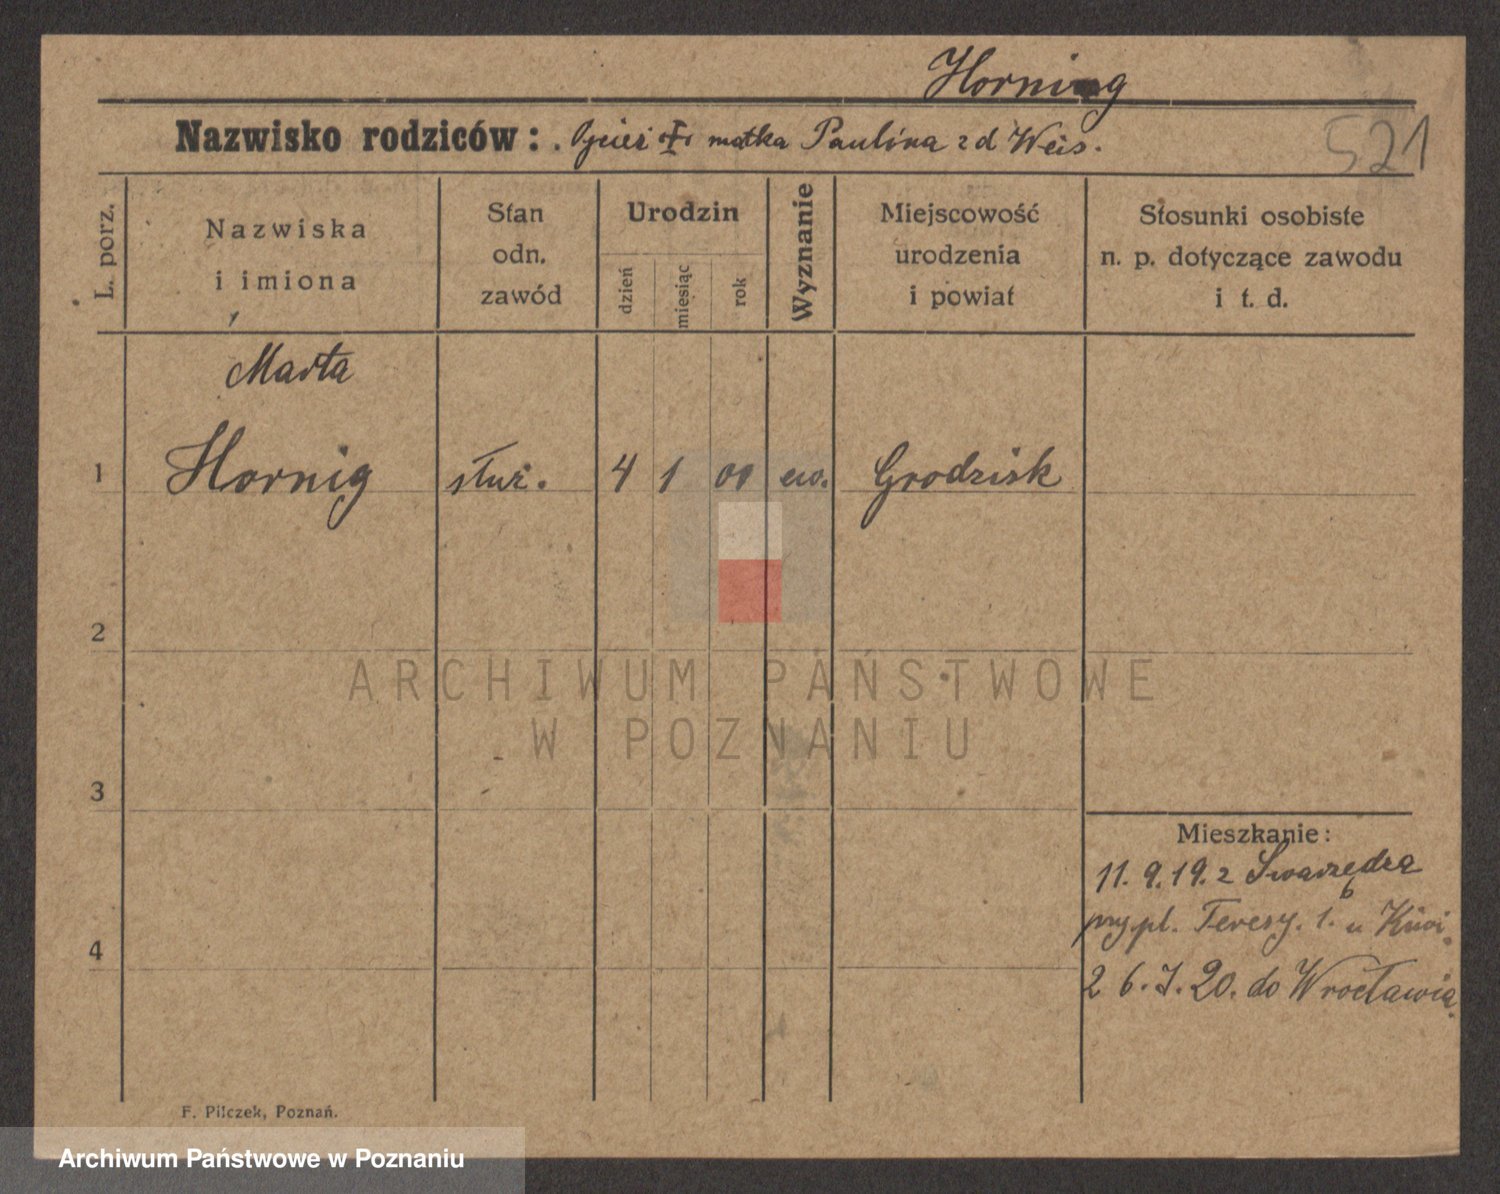 Horning
Nazwisko rodziców: . Ojciec † matka Paulina z d Weis.
521
L. porz.
Nazwiska
i imiona
Stan
odn.
zawód
Urodzin
dzień
miesiąc
rok
Wyznanie
Miejscowość
urodzenia
i powiat
Stosunki osobiste
n. p. dotyczące zawodu
i t. d.
Marta
1 Hornig służ. 4 1 00 ew. Grodzisk
2
3
4
Mieszkanie:
11. 9. 19. z Swarzędza
pl. Teresy. 1. u
26. 7. 20. do Wrocławia.
F. Pilczek, Poznań.
ARCHIWUM PAŃSTWOWE
W POZNANIU
Archiwum Państwowe w Poznaniu